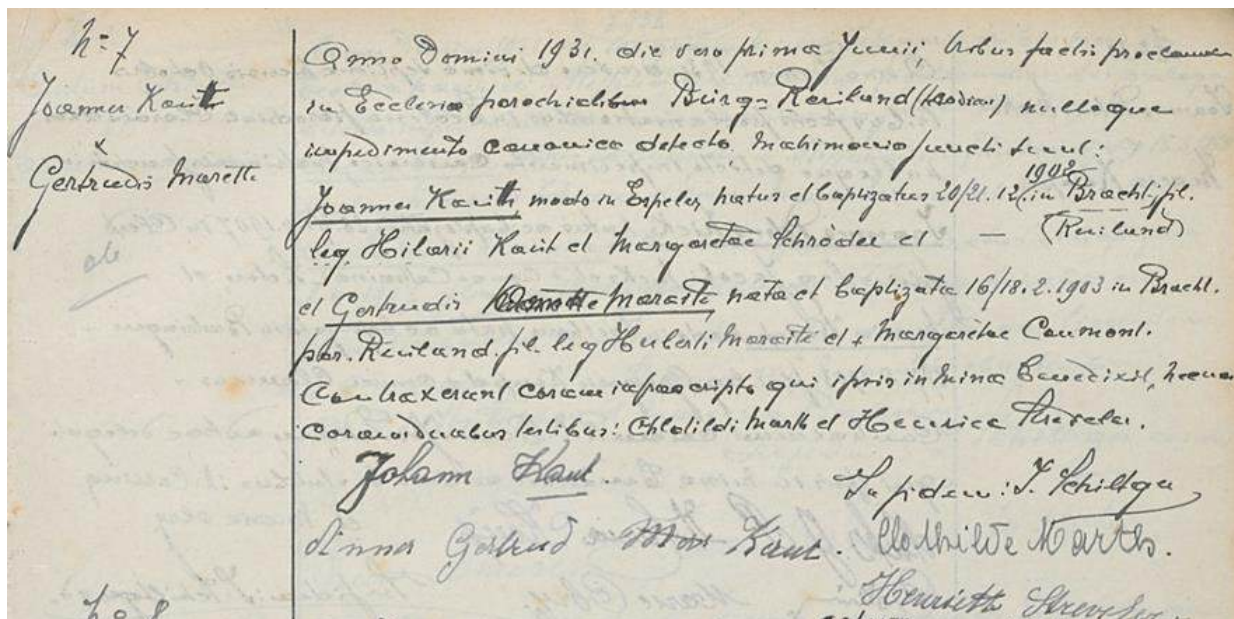 N= 7
Joannes Kauth
x
Gertrudis Marette
Anno Domini 1931. die vero prima Junii, tribus factis proclam
in Ecclesia parochialibus Burg-Reuland (Leodien) nulloque
impedimento canonico detecto. Matrimonio juncti sunt:
Joannes Kauth modo in Espeler, natus et baptizatus 20/21. 12. 1902 in Bracht, fil.
leg. Hilarii Kaut et Margaretae Schröder et — (Reuland)
et Gertrudis Maraite, nata et baptizata 16/18. 2. 1903 in Bracht.
par. Reuland. fil. leg Huberti Maraite et + Margaretae Caumont.
Contraxerunt coram infrascripto qui ipsis in Missa benedixit, necnon
coram duabus testibus: Chlotildi Marth et Henrica
Johann Kaut.
In fidem: J. Schiltgen
Anna Gertrud Kaut.
Clothilde Marth.
Henrieth